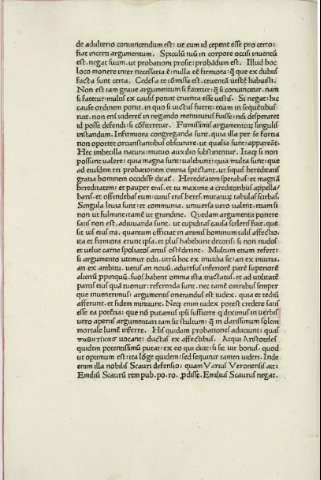 de adulterio conuincendum est: ut eum id cepent esse pro certo:
fiat incerti argumentum. Spiculū tuū in corpore occisi inuentū
est. negat suum. ut probationi prosit: probādum est. Illud hoc
loco monere inter necessaria ē: nulla eē firmiora: q̄ que ex dubiis
facta sunt certa. Cedes a te cōmissa est. cruentā uestē habuisti.
Non est tam graue argumentum si fatetur: q̄ si conuincitur. nam
si fatetur: multis ex causis potuit cruenta esse uestis. Si negat: hic
cause cardinem ponit. in quo si uictus fuerit: etiam in sequentibus
ruit. non eni uidetur in negando mentiturus fuisse: nisi desperasset
id posse defendi si cōfiteretur. Firmissimis argumentorū singulis
instandum. Infirmiora congreganda sunt. quia illa per se fortia
non oportet circunstantibus obscurare. ut qualia sunt: appareāt.
Hec imbecilla natura: mutuo auxilio sustinentur. Itaq; si non
possunt ualere: quia magna sunt: ualebunt: quia multa sunt: que
ad eiusdem rei probationem omnia spectant. ut siquis hereditatis
gratia hominem occidisse dicat. Hereditatem sperabas: et magnā
hereditatem: et pauper eras. et tu maxime a creditoribus appella/
baris. et offenderas eum: cuius eras heres. mutaturū tabulas sciebas.
Singula leuia sunt et communia. uniuersa uero ualent: etiam si
non ut fulmine: tamē ut grandine. Quedam argumenta ponere
satis non est. adiuuanda sunt. ut cupiditas causa sceleris fuit. que
sit uis eius. ira. quantum efficiat in animis hominum talis affectio.
ita et firmiora erunt ipsa. et plus habebunt decoris: si non nudos:
et uelut carne spoliatos artus ostenderint. Multum etiam refert:
si argumento utimur odii. utrū hoc ex inuidia sit: an ex iniuria.
an ex ambitu. uetus an nouū. aduersus inferiorē parē superiorē
alienū ppinquū. suos habent omnia ista tractatus. et ad utilitatē
partis eius quā tuemur: referenda sunt. nec tamē omnibus semper
que inuenerimus argumentis onerandus est iudex. quia et tediū
afferunt. et fidem minuunt. Neq; enim iudex potest credere satis
esse ea potentia: que nō putamus ipsi sufficere q dicimus. in rebus
uero apertis argumentari tam sit stultum: q̄ in clarissimum solem
mortale lumē inferre. His quidam probationes adiiciunt: quas
παθητικας uocant: ductas ex affectibus. Atqui Aristoteles
quidem potentissimū putat: ex eo qui dicit: si sit uir bonus. quod
ut optimum est: ita lōge quidem: sed sequitur tamen uideri. Inde
enim illa nobilis Scauri defensio: quam Varius Veronensis ait:
Emiliū Scaurū rempub. po. ro. pdisse. Emilius Scaurus negat.